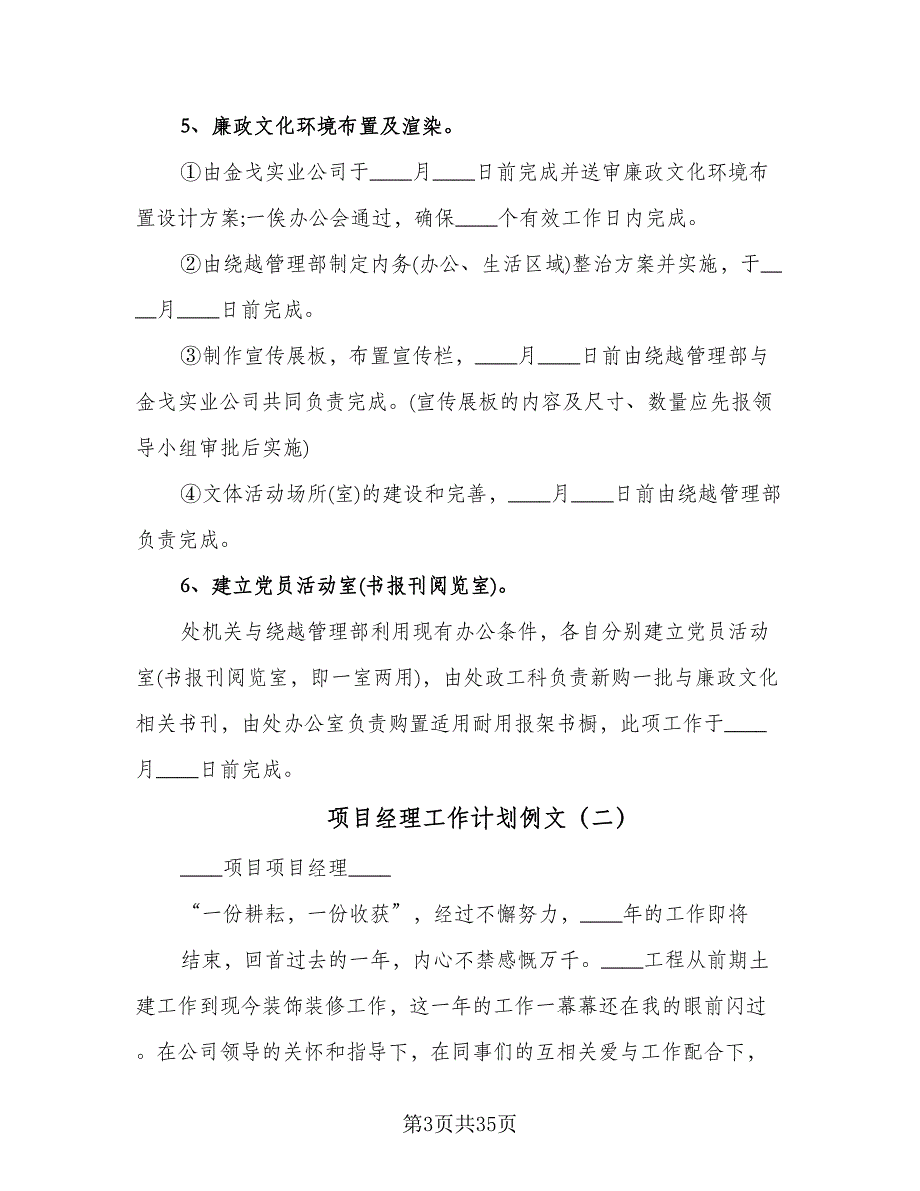 5、廉政文化环境布置及渲染。
①由金戈实业公司于____月____日前完成并送审廉政文化环境布
置设计方案;一俟办公会通过，确保____个有效工作日内完成。
②由绕越管理部制定内务(办公、生活区域)整治方案并实施，于__
__月____日前完成。
③制作宣传展板，布置宣传栏，____月____日前由绕越管理部与
金戈实业公司共同负责完成。(宣传展板的内容及尺寸、数量应先报领
导小组审批后实施)
④文体活动场所(室)的建设和完善，____月____日前由绕越管理部
负责完成。
6、建立党员活动室(书报刊阅览室)。
处机关与绕越管理部利用现有办公条件，各自分别建立党员活动
室(书报刊阅览室，即一室两用)，由处政工科负责新购一批与廉政文化
相关书刊，由处办公室负责购置适用耐用报架书橱，此项工作于____
月____日前完成。
项目经理工作计划例文（二）
____项目项目经理____
“一份耕耘，一份收获”，经过不懈努力，____年的工作即将
结束，回首过去的一年，内心不禁感慨万千。____工程从前期土
建工作到现今装饰装修工作，这一年的工作一幕幕还在我的眼前闪过
。在公司领导的关怀和指导下，在同事们的互相关爱与工作配合下，
第3页共35页